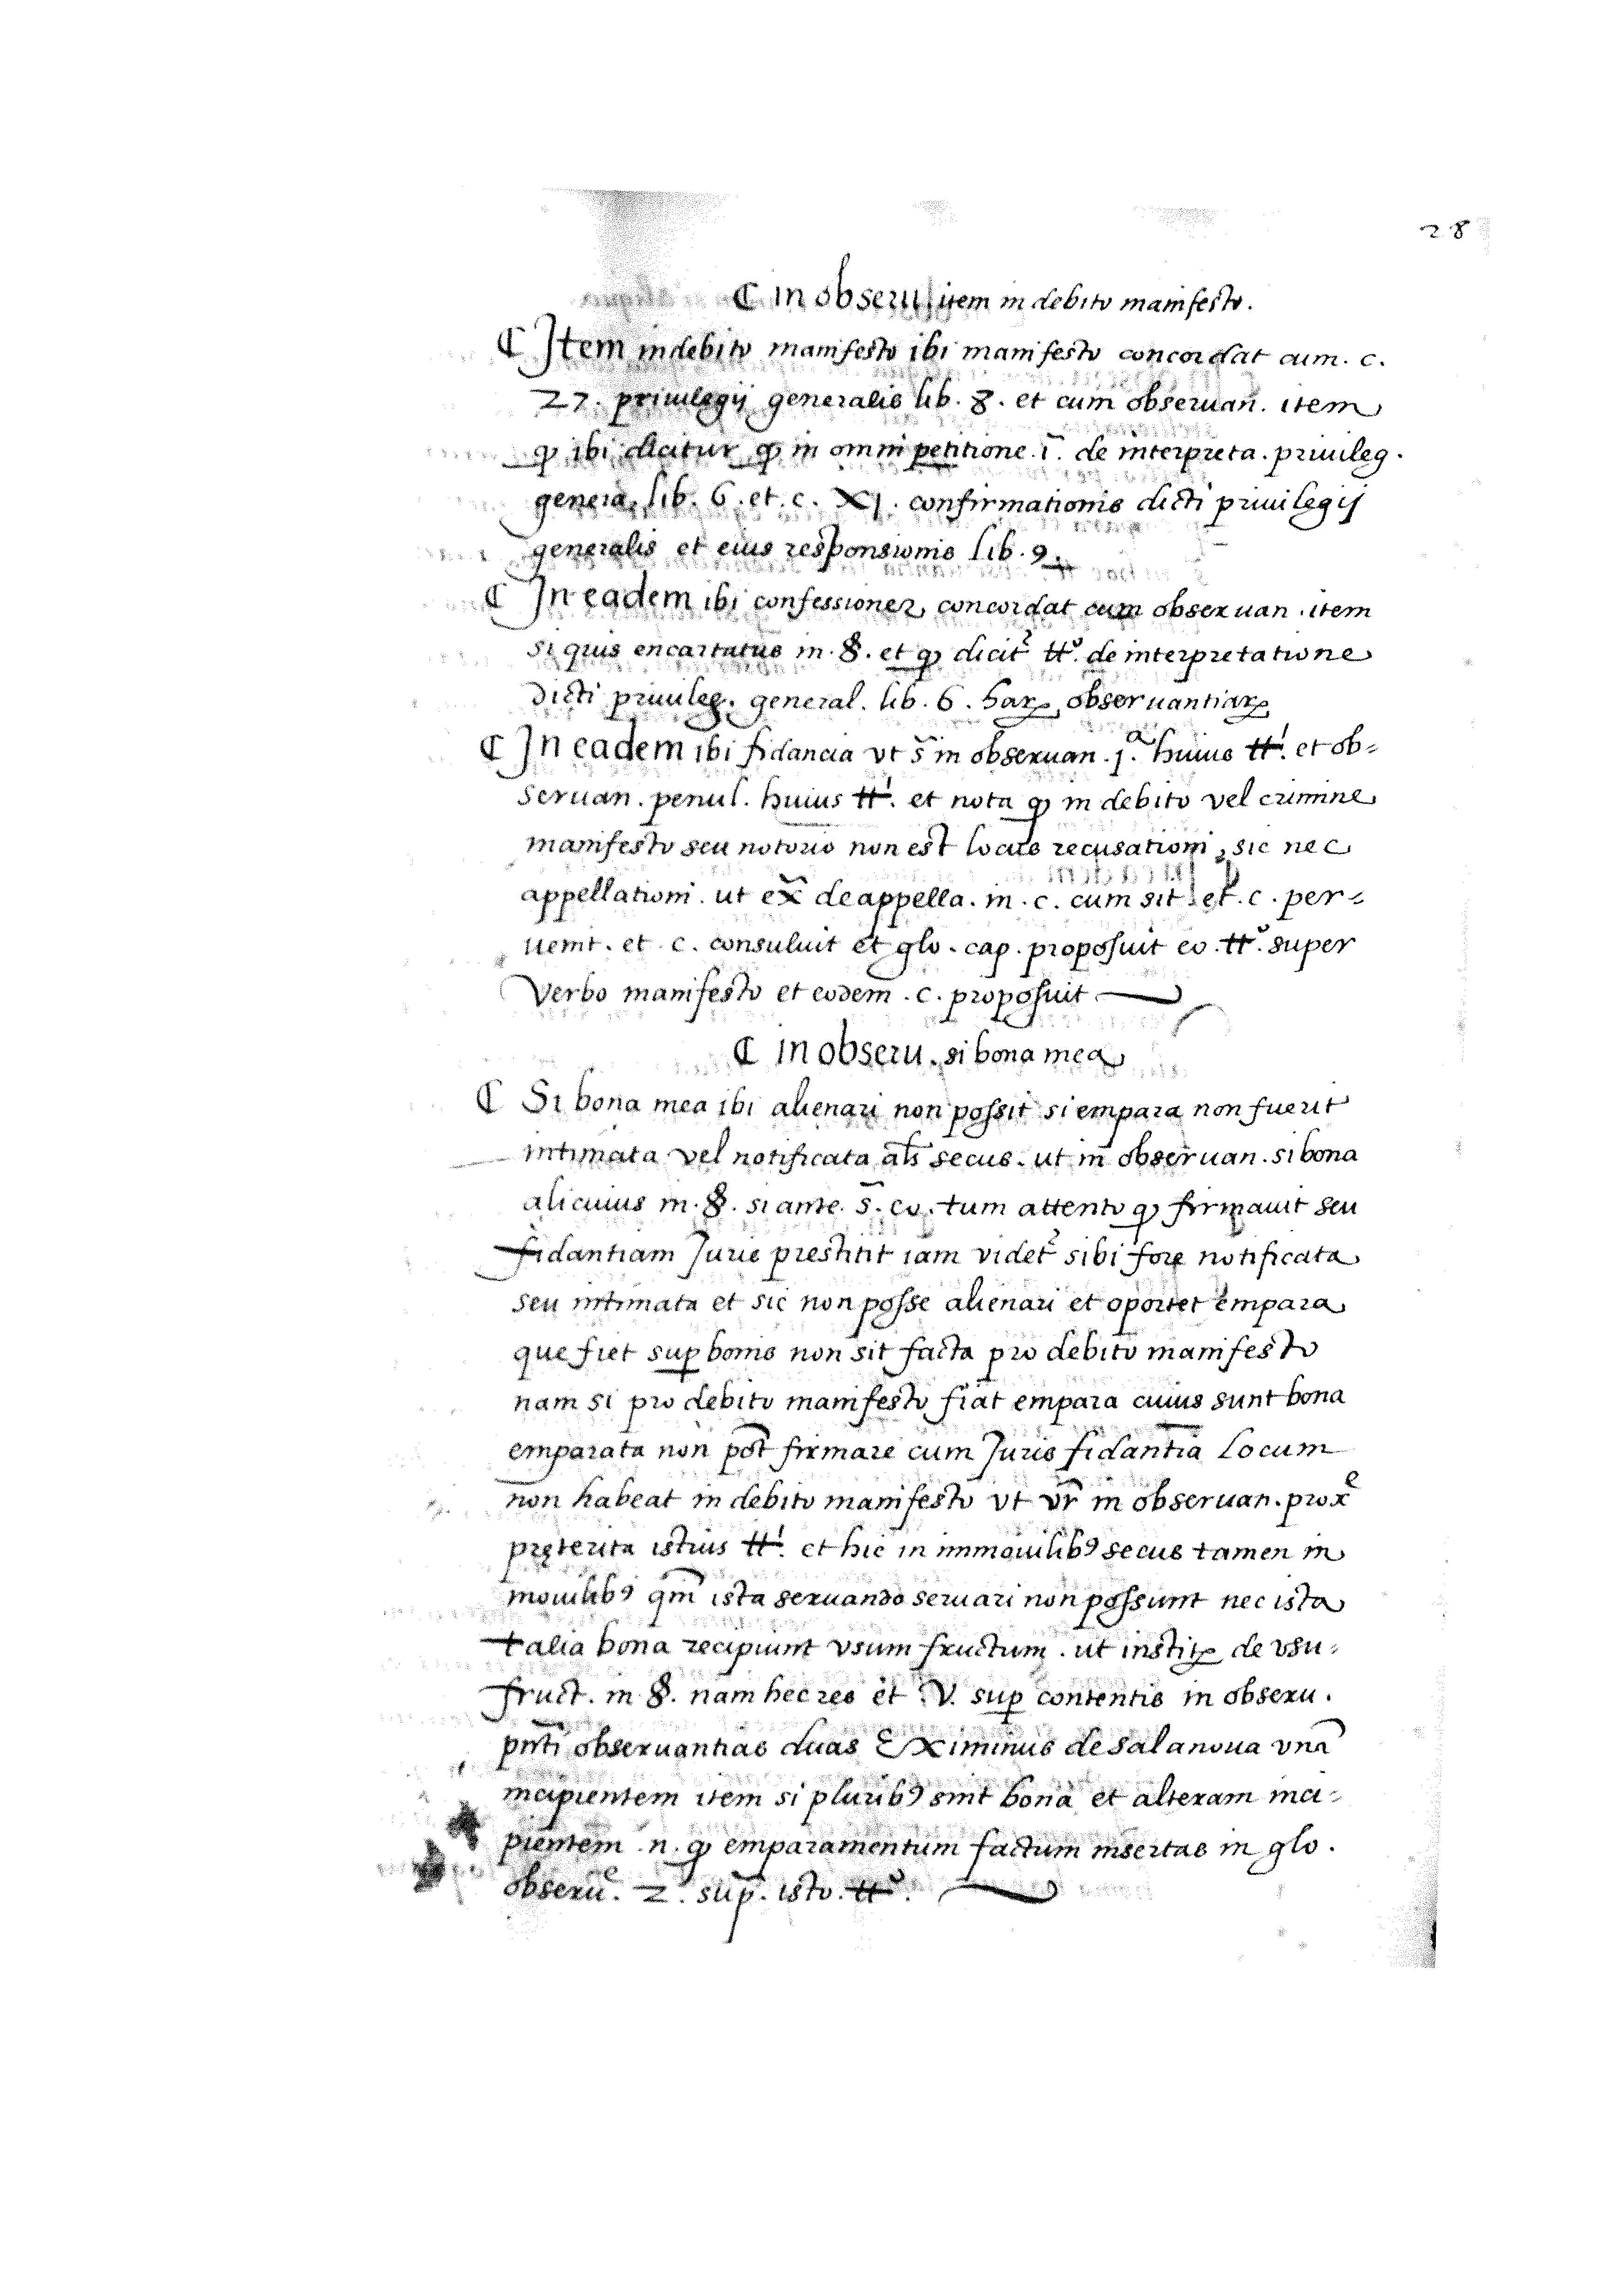 28
¶ in obseru. item in debito manifesto.
¶ Item in debito manifesto ibi manifesto concordat cum. c.
27. priuilegij generalis lib. 8. et cum obseruan̄. item
ꝙ ibi dicitur ꝙ in omni petitione. ī. de interpreta. priuileg.
genera. lib. 6. et. c. XI. confirmationis dicti priuilegij
generalis et eius responsionis lib. 9.
¶ In eadem ibi confessionez, concordat cum obseruan. item
si quis encartatus in. §. et ꝙ dicit᷑ tt.º de interpretatione
dicti priuileg. general. lib. 6. harꝝ obseruantiarꝝ
¶ In eadem ibi fidancia vt s̄ in obseruan. j.ª huius tt.ⁱ et ob=
seruan. penul. huius tt.ⁱ et nota ꝙ in debito vel crimine
manifesto seu notorio non est locus recusationi, sic nec
appellationi. ut ex̄ de appella. in. c. cum sit. et. c. per=
uenit. et. c. consuluit et glo. cap. proposuit eo. tt.º super
verbo manifesto et eodem. c. proposuit
¶ in obseru. si bona mea
¶ Si bona mea ibi alienari non possit si empara non fuerit
intimata vel notificata al̄s secus. ut in obseruan. si bona
alicuius in. §. si ante. s̄. eo. tum attento ꝙ firmauit seu
fidantiam Juris prestitit iam videt᷑ sibi fore notificata
seu intimata et sic non posse alienari et oportet empara
que fiet suꝑ bonis non sit facta pro debito manifesto
nam si pro debito manifesto fiat empara cuius sunt bona
emparata non pōt firmare cum Juris fidantia Locum
non habeat in debito manifesto vt vr̄ in obseruan. proxᵉ
pręterita istius tt.ⁱ et hic in immouilibꝰ secus tamen in
mouilibꝰ qm̄ ista seruando seruari non possunt nec ista
talia bona recipiunt vsum fructum. ut institꝝ de vsu=
fruct. in §. nam hec res et. V. suꝑ contentis in obseru.
pn̄ti obseruantias duas Eximinus de salanoua vnā
incipientem item si pluribꝰ sint bona et alteram inci=
pientem. n. ꝙ emparamentum factum insertas in glo.
obseruᵉ. 2. sup̄. isto. tt.º.